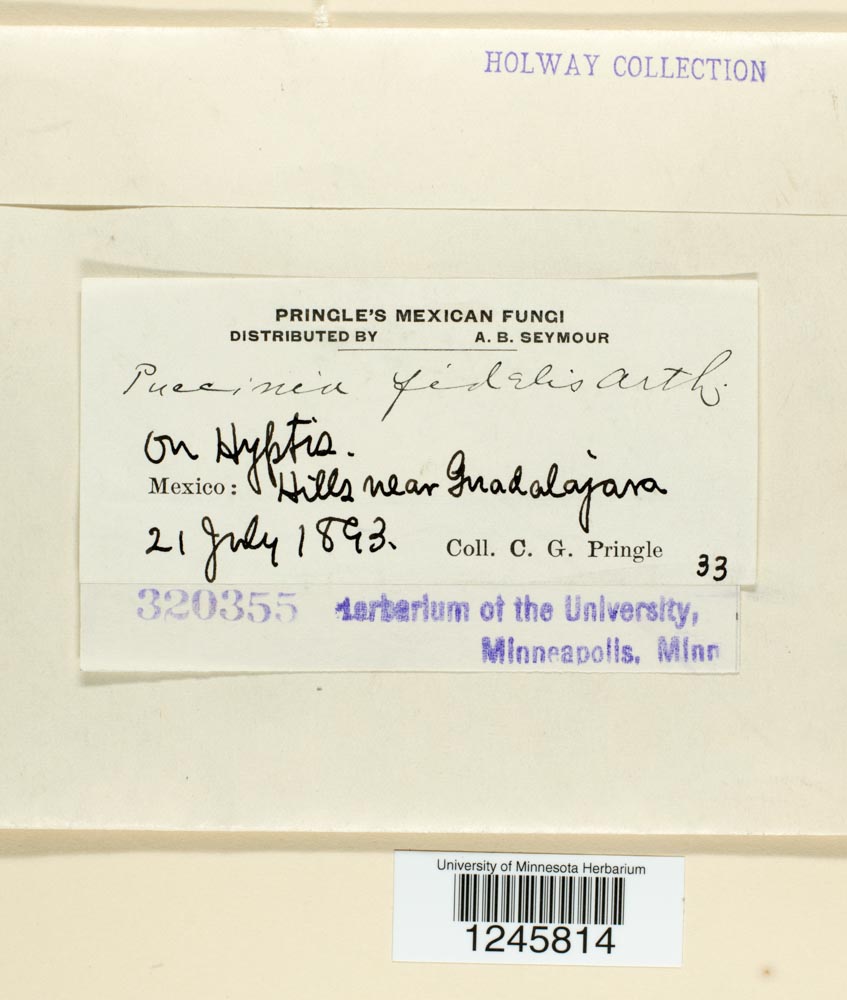 HOLWAY COLLECTION
PRINGLE'S MEXICAN FUNGI
DISTRIBUTED BY A. B. SEYMOUR
Puccinia fidelis Arth.
On Hyptis.
Mexico: Hills near Guadalajara
21 July 1893. Coll. C. G. Pringle 33
320355 Herbarium of the University,
Minneapolis, Minn
University of Minnesota Herbarium
1245814